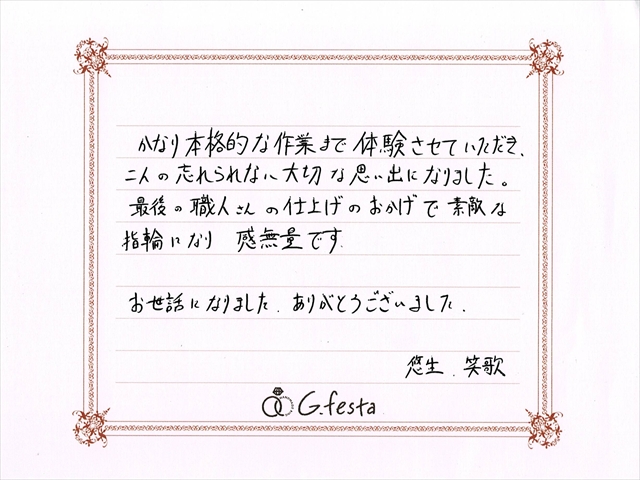 かなり本格的な作業まで体験させていただき、
二人の忘れられない大切な思い出になりました。
最後の職人さんの仕上げのおかげで素敵な
指輪になり 感無量です.
お世話になりました. ありがとうございました.
悠生. 笑歌
G.festa